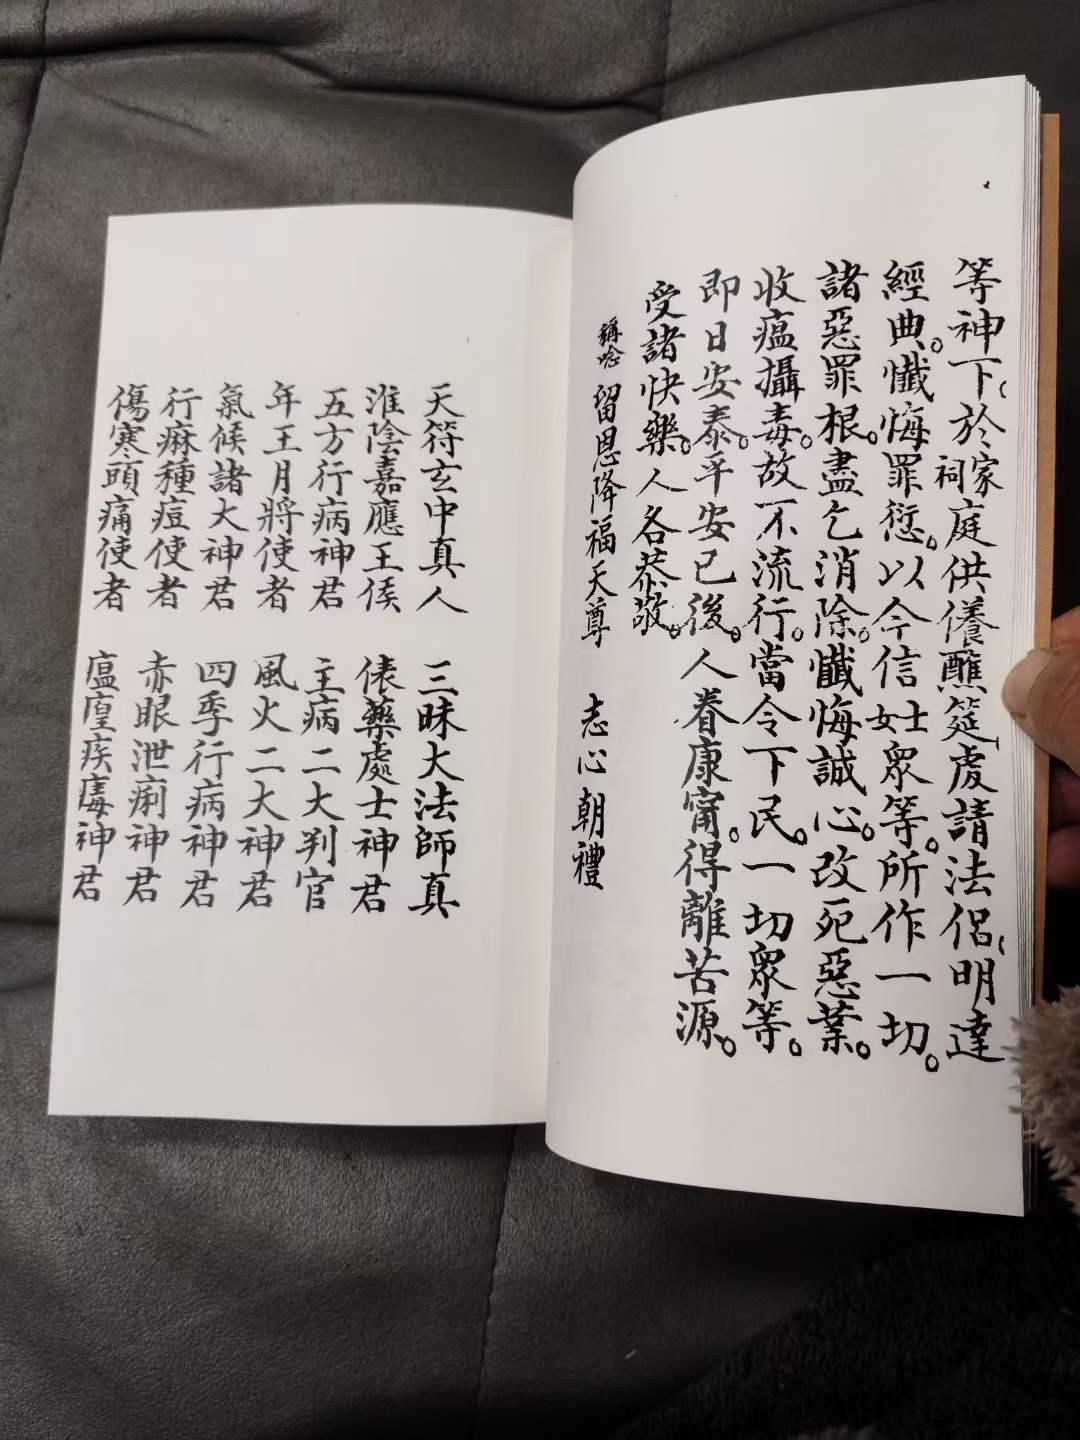 等神下於家祠庭供養醮筵處請法侶明達
經典。懺悔罪愆。以今信士女眾等。所作一切。
諸惡罪根。盡乞消除。懺悔誠心。改死惡業。
收瘟攝毒。故不流行。當令下民。一切眾等。
即日安泰。平安已後。人眷康甯。得離苦源。
受諸快樂。人各恭敬。
稱唸 留恩降福天尊 志心朝禮
天符玄中真人 三昧大法師真
淮陰嘉應王侯 俵藥處士神君
五方行病神君 主病二大判官
年王月將使者 風火二大神君
氣候諸大神君 四季行病神君
行麻種痘使者 赤眼泄痢神君
傷寒頭痛使者 瘟𤶤疾毒神君